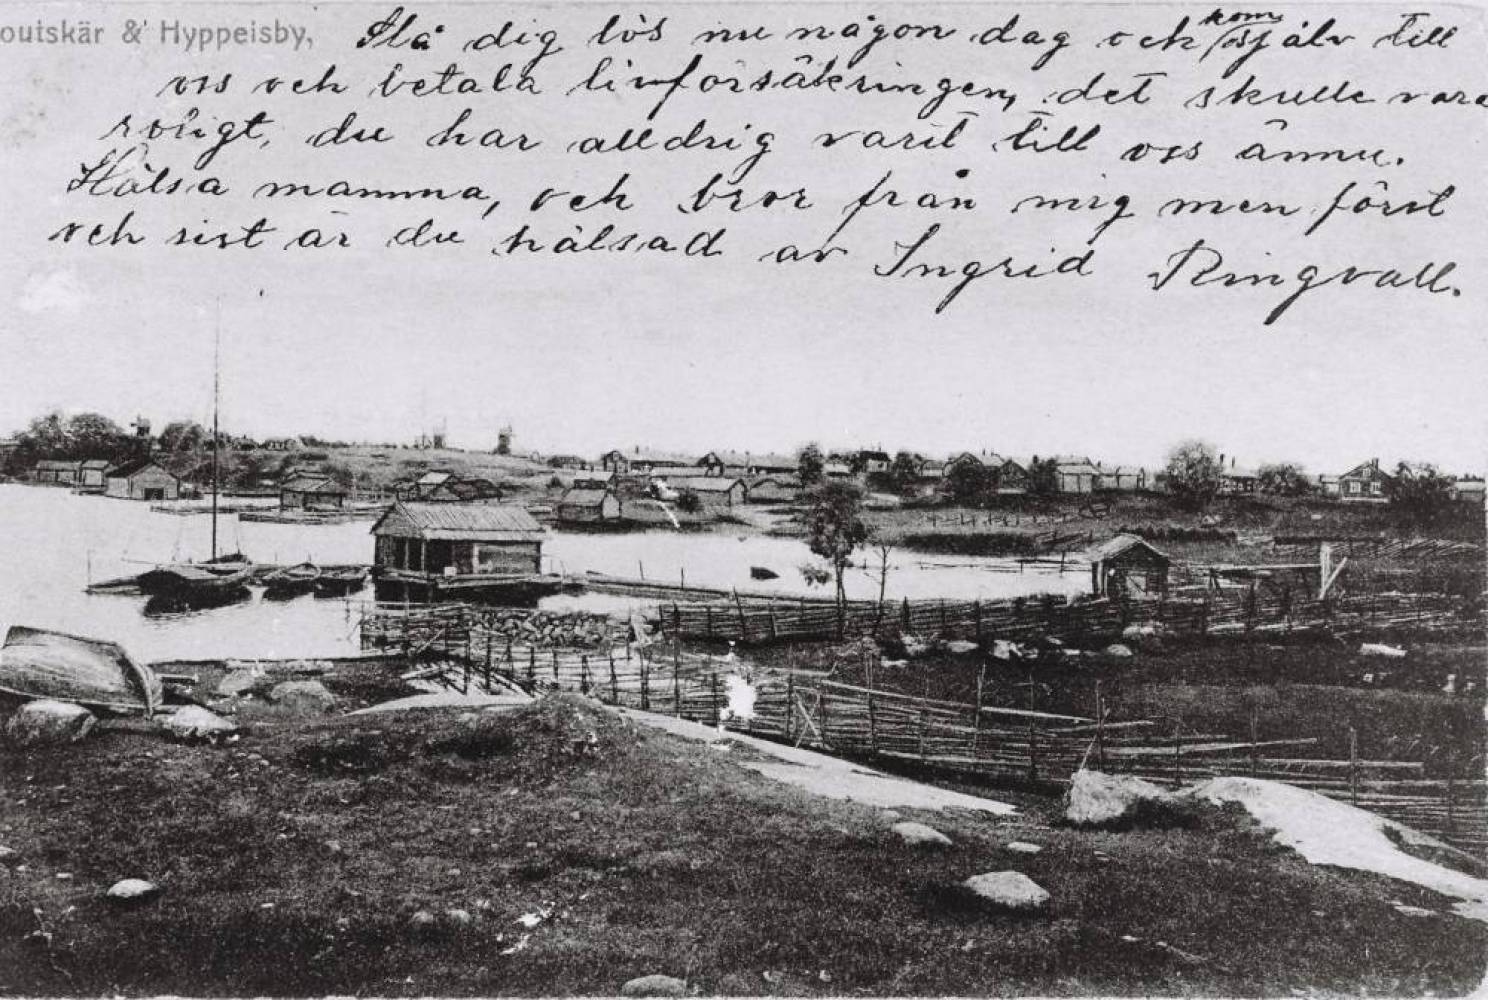 outskär & Hyppeisby,
Slå dig lös nu någon dag och kom själv till
oss och betala livförsäkringen, det skulle vara
roligt, du har alldrig varit till oss ännu.
Hälsa mamma, och bror från mig men först
och sist är du hälsad av Ingrid Ringvall.